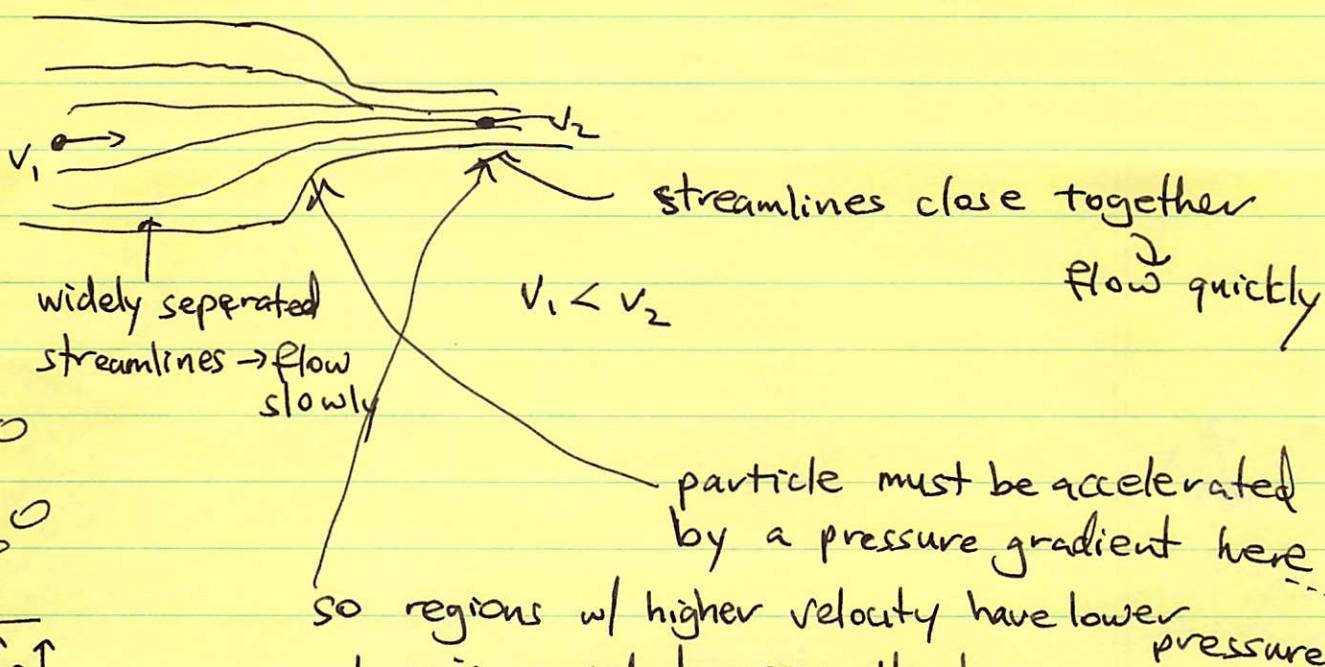 V₁
V₂
streamlines close together
flow quickly
widely seperated
streamlines → flow
slowly
V₁ < V₂
particle must be accelerated
by a pressure gradient here
so regions w/ higher velocity have lower
pressure